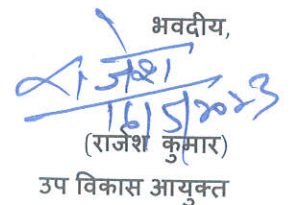 भवदीय,
राजेश
16/5/2023
(राजेश कुमार)
उप विकास आयुक्त